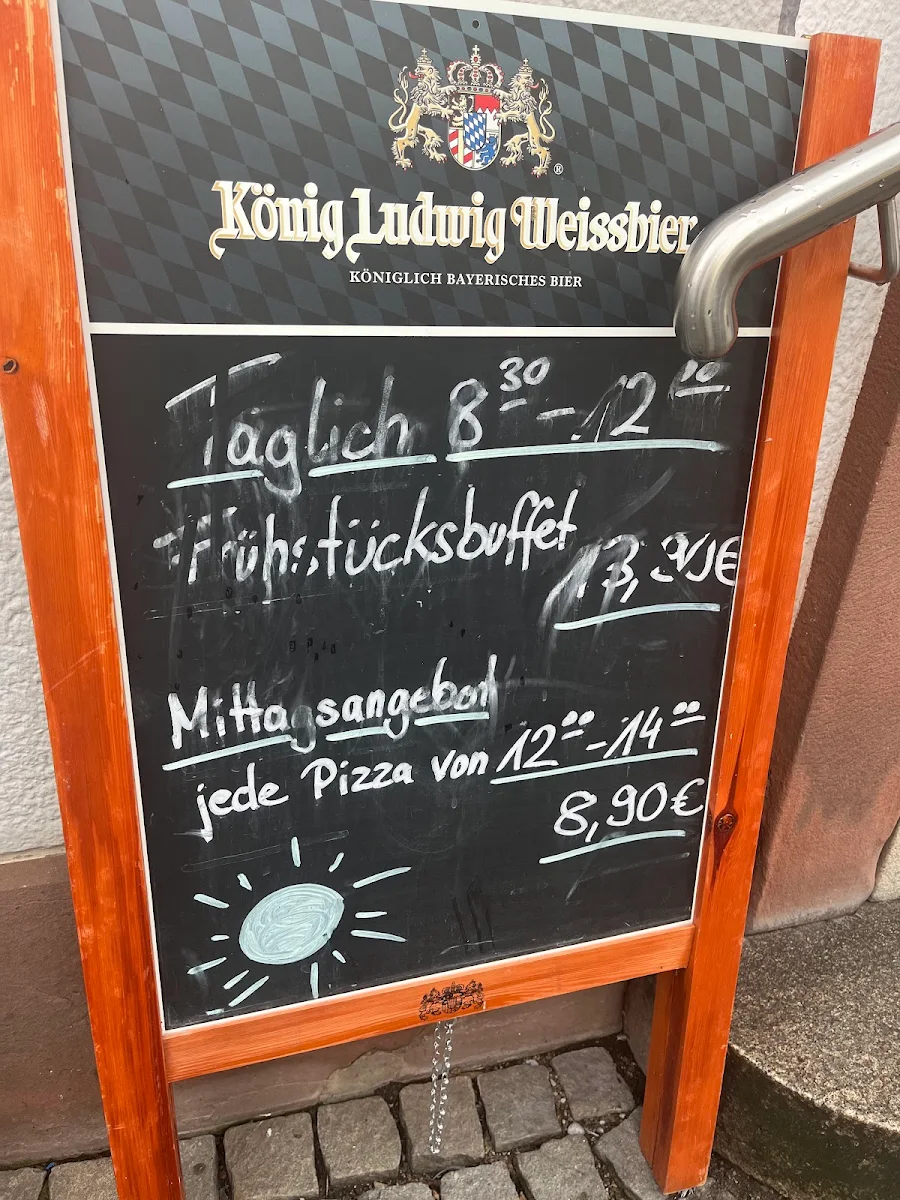 König Ludwig Weissbier
®
KÖNIGLICH BAYERISCHES BIER
Täglich 8³⁰ - 12⁰⁰
Frühstücksbuffet
13,90€
Mittagsangebot
jede Pizza von 12⁰⁰ - 14⁰⁰
8,90€